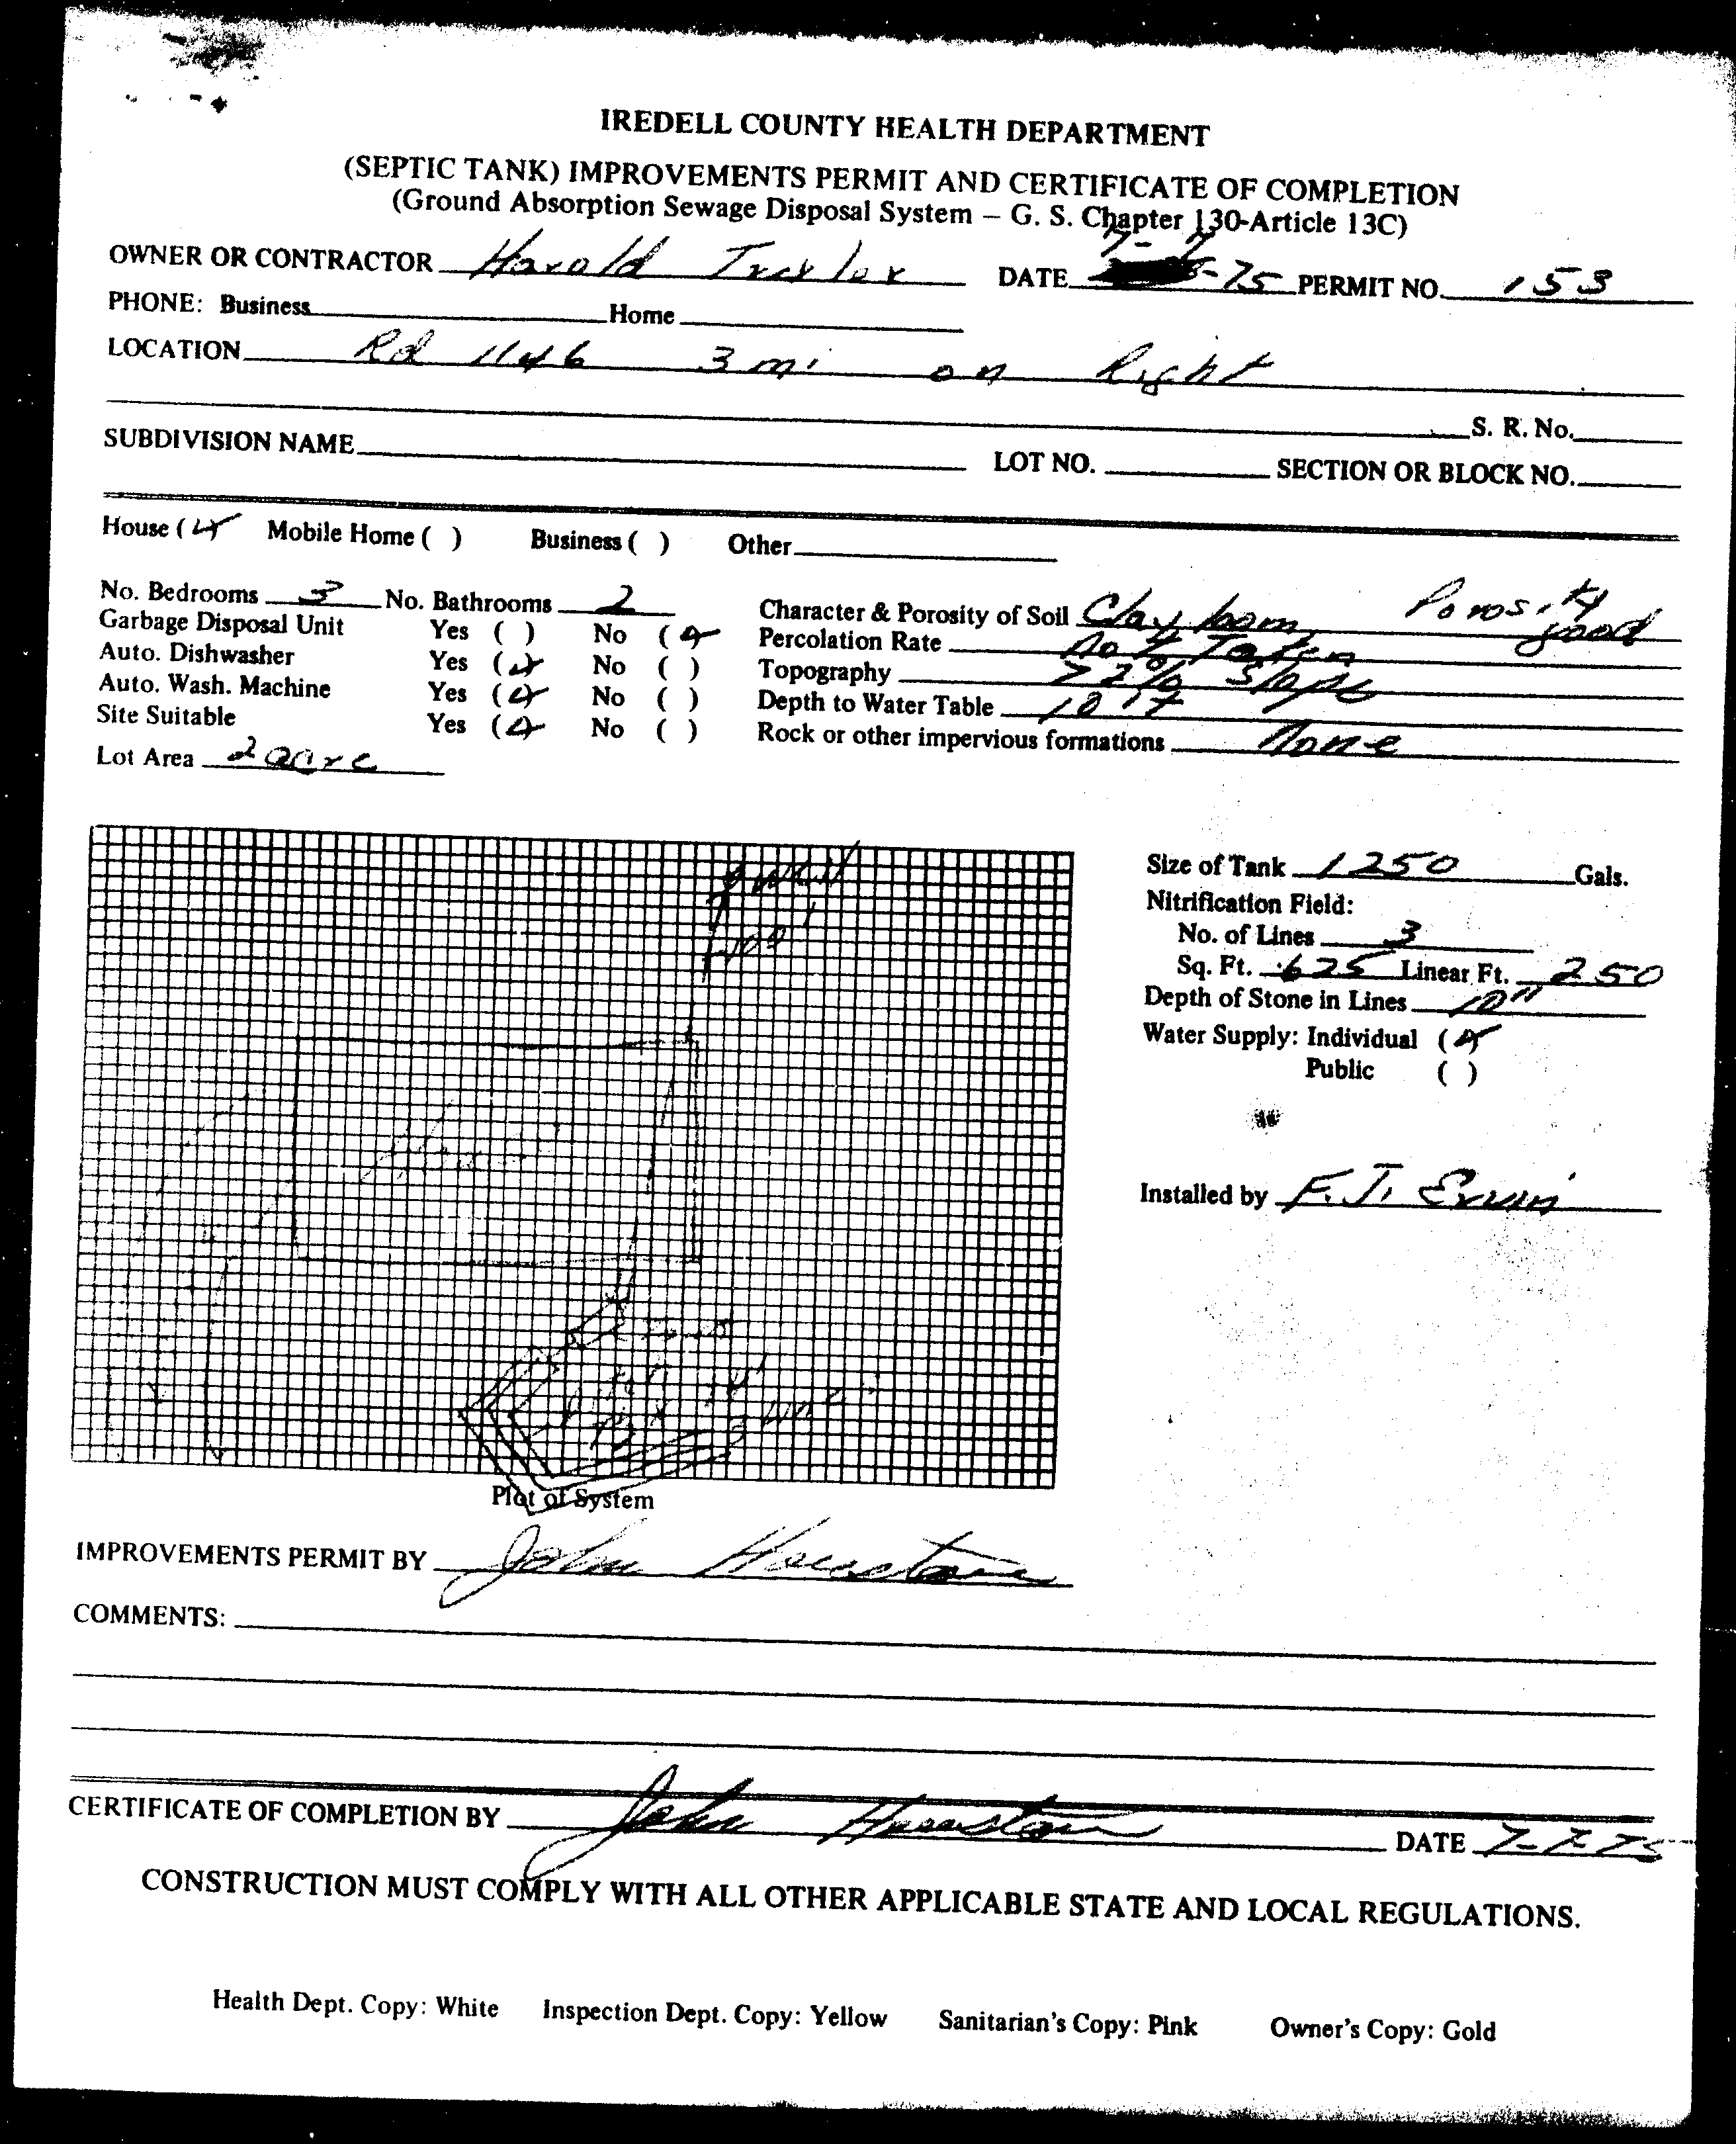 IREDELL COUNTY HEALTH DEPARTMENT
(SEPTIC TANK) IMPROVEMENTS PERMIT AND CERTIFICATE OF COMPLETION
(Ground Absorption Sewage Disposal System – G. S. Chapter 130-Article 13C)
OWNER OR CONTRACTOR Harold DATE 7-7-75 PERMIT NO. 153
PHONE: Business Home
LOCATION Rd 1146 3 mi on Right
S. R. No.
SUBDIVISION NAME LOT NO. SECTION OR BLOCK NO.
House ( ) Mobile Home ( ) Business ( ) Other
No. Bedrooms 3 No. Bathrooms 2 Character & Porosity of Soil Clay loam Porosity good
Garbage Disposal Unit Yes ( ) No ( ) Percolation Rate Not Taken
Auto. Dishwasher Yes ( ) No ( ) Topography 22% Slope
Auto. Wash. Machine Yes ( ) No ( ) Depth to Water Table
Site Suitable Yes ( ) No ( ) Rock or other impervious formations None
Lot Area 2 acre
well
100'
Size of Tank 1250 Gals.
Nitrification Field:
No. of Lines 3
Sq. Ft. 625 Linear Ft. 250
Depth of Stone in Lines 10"
Water Supply: Individual ( )
Public ( )
Installed by F. J.
Plot of System
IMPROVEMENTS PERMIT BY John
COMMENTS:
CERTIFICATE OF COMPLETION BY John DATE 7-7-75
CONSTRUCTION MUST COMPLY WITH ALL OTHER APPLICABLE STATE AND LOCAL REGULATIONS.
Health Dept. Copy: White Inspection Dept. Copy: Yellow Sanitarian's Copy: Pink Owner's Copy: Gold